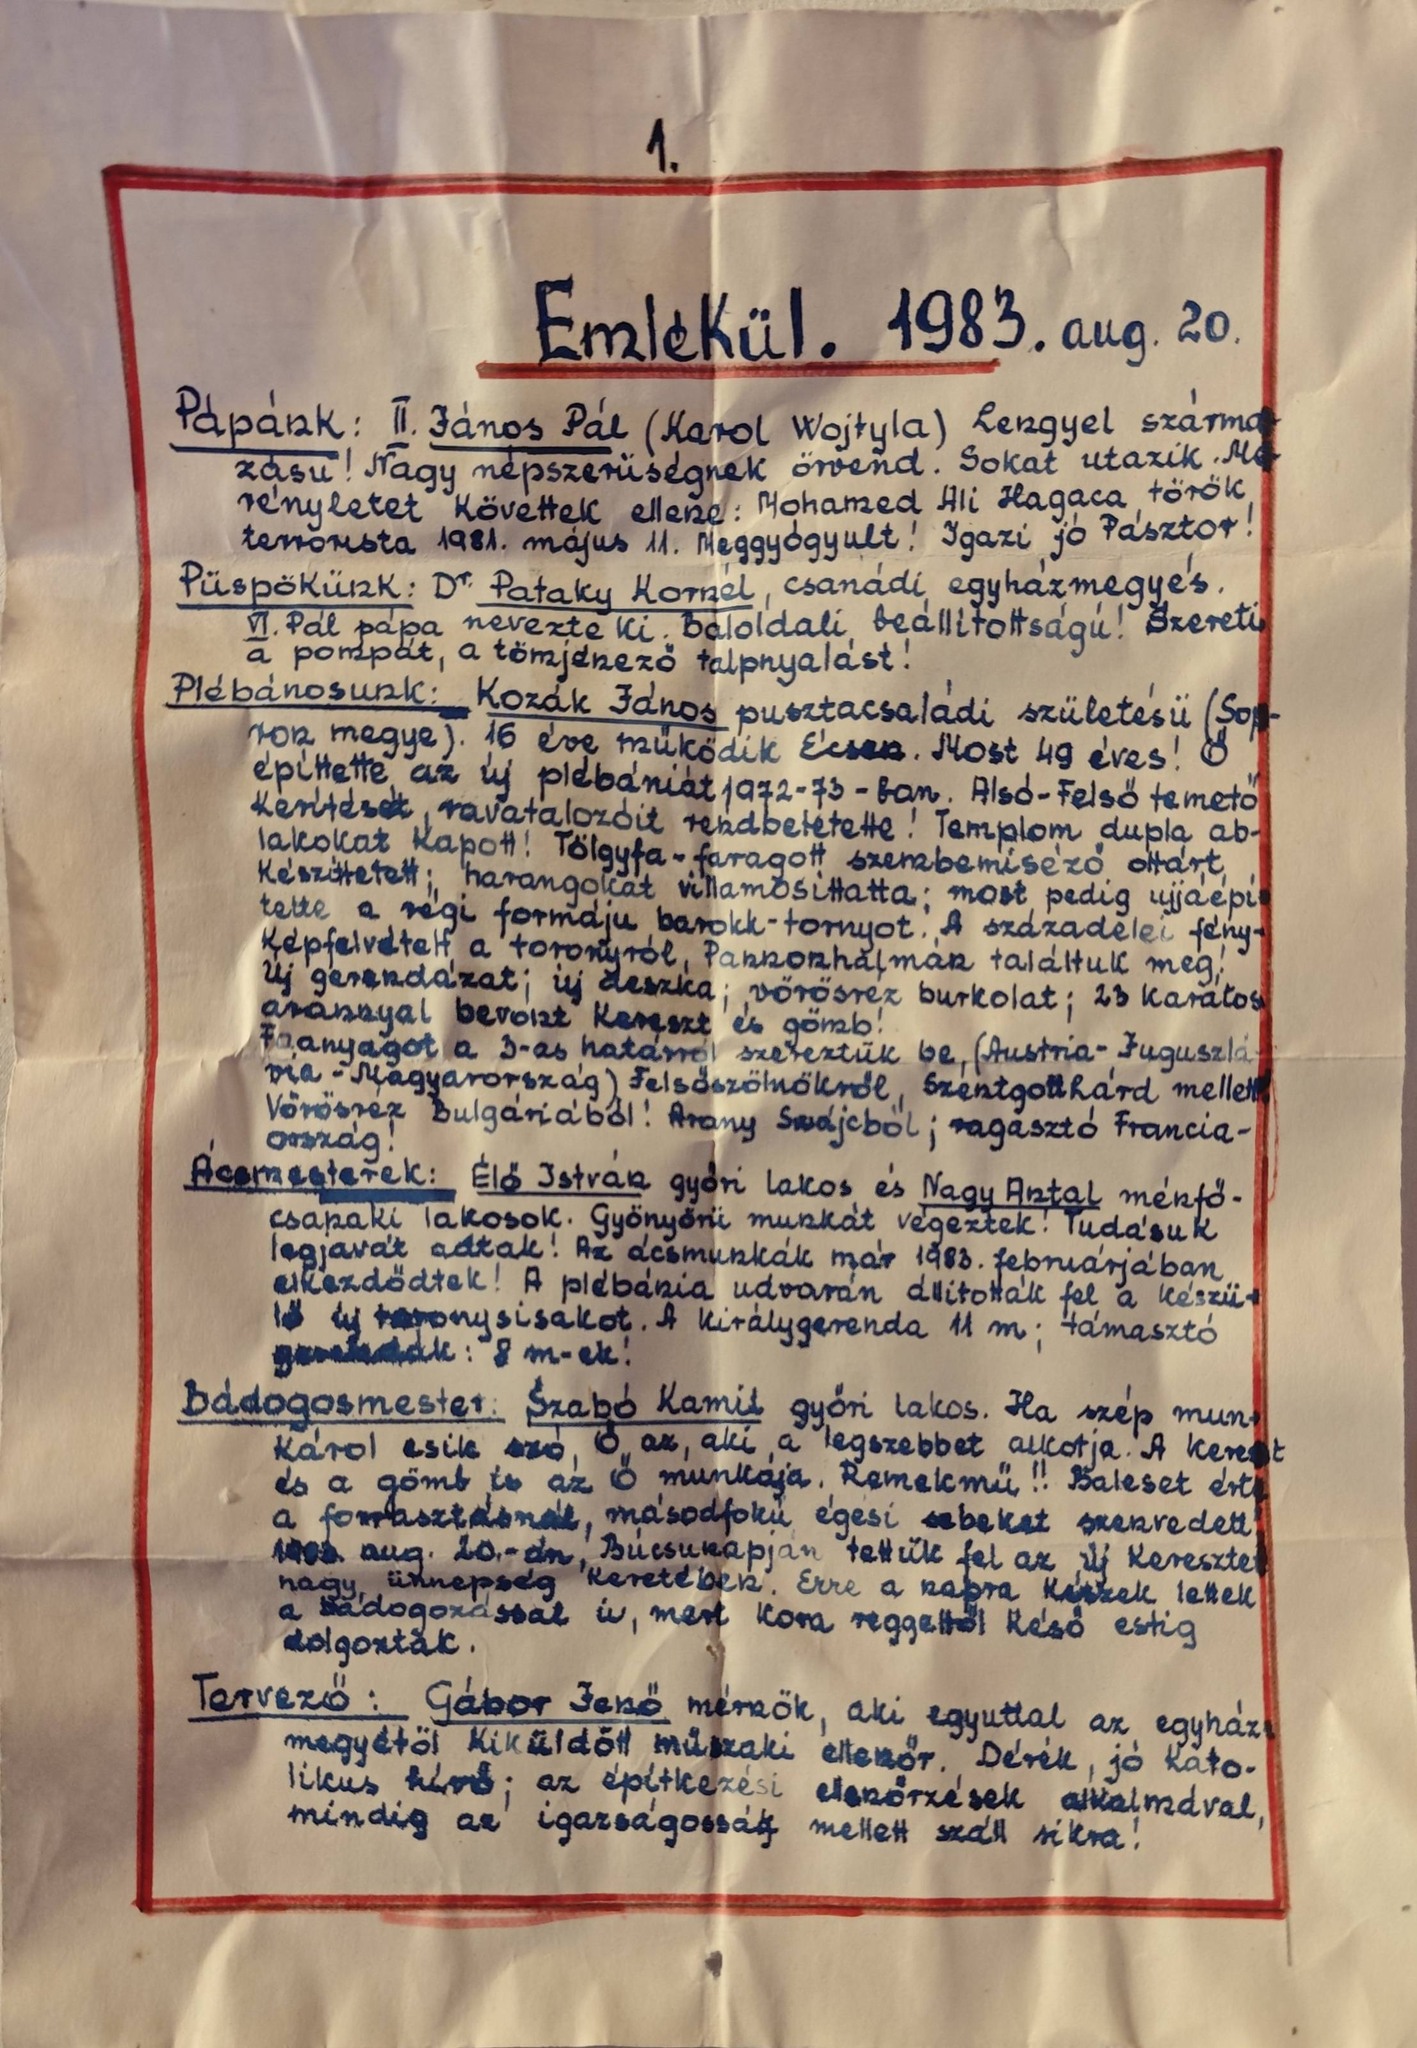 1.
Emlékül. 1983. aug. 20.
Pápánk: II. János Pál (Karol Wojtyla) Lengyel szárma-
zásu! Nagy népszerüségnek örvend. Sokat utazik. Me-
rényletet követtek ellene: Mohamed Ali Hagaca török
terrorista 1981. május 11. Meggyógyult! Igazi jó Pásztor!
Püspökünk: Dr. Pataky Kornél, csanádi egyházmegyés.
VI. Pál pápa nevezte ki. Baloldali beállitottságú! Szereti
a pompát, a tömjénező talpnyalást!
Plébánosunk: Kozák János pusztacsaládi születésü (Sop-
ron megye). 16 éve müködik Écsen. Most 49 éves! Ő
épittette az új plébániát 1972-73-ban. Alsó-Felső temető
kerítését, ravatalozóit rendbetétette! Templom dupla ab-
lakokat kapott! Tölgyfa-faragott szembemiséző oltárt
készíttetett; harangokat villamosíttatta; most pedig ujjáépí-
tette a régi formáju barokk-tornyot! A századelei fény-
képfelvételt a toronyról, Pannonhalmán találtuk meg!
Új gerendázat; új deszka; vörösréz burkolat; 23 karátos
arannyal bevont kereszt és gömb!
Faanyagot a 3-as határról szereztük be, (Austria-Juguszlá-
via-Magyarország) Felsőszölnökről, Szentgotthárd mellett
Vörösréz Bulgáriából! Arany Svájcból; ragasztó Francia-
ország!
Ácsmesterek: Élő István győri lakos és Nagy Antal ménfő-
csanaki lakosok. Gyönyörü munkát végeztek! Tudásuk
legjavát adták! Az ácsmunkák már 1983. februárjában
elkezdődtek! A plébánia udvarán állították fel a készü-
lő új toronysisakot. A királygerenda 11 m; támasztó
gerendák: 8 m-ek!
Bádogosmester: Szabó Kamil győri lakos. Ha szép mun-
káról esik szó, Ő az, aki a legszebbet alkotja. A kereszt
és a gömb is az Ő munkája. Remekmü!! Baleset érte
a forrasztásnál, másodfokú égési sebeket szenvedett
1983. aug. 20.-án, Búcsunapján tettük fel az új keresztet
nagy ünnepség keretében. Erre a napra készek lettek
a bádogozással is, mert kora reggeltől késő estig
dolgoztak.
Tervező: Gábor Jenő mérnök, aki egyuttal az egyház-
megyétől kiküldött müszaki ellenőr. Dérék, jó kato-
likus hívő; az építkezési ellenőrzések alkalmával,
mindig az igazságosság mellett száll sikra!